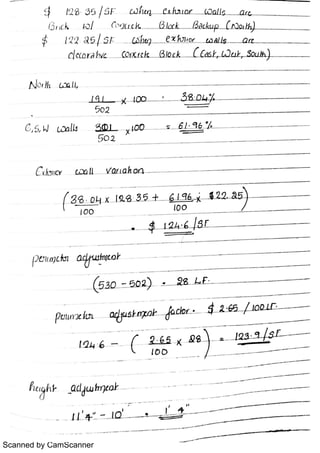 $ 128.35/SF when exterior walls are
Brick w/ Concrete Block Backup (North)
$ 122.25/SF when exterior walls are
decorative concrete Block (East, West, South)
North wall,
191 x 100 = 38.04%
502
E,S,W walls 301 x 100 = 61.96%
502
Exterior wall variation
(38.04 x 128.35 + 61.96 x $122.25)
100 100
= $ 124.6 /SF
perimeter adjustment
(530 - 502) = 28 LF.
perimeter adjustment factor = $ 2.65 / 100 LF.
124.6 - (2.65 x 28) = 123.9/SF
100
height adjustment
11'4" - 10' = 1'4"
Scanned by CamScanner